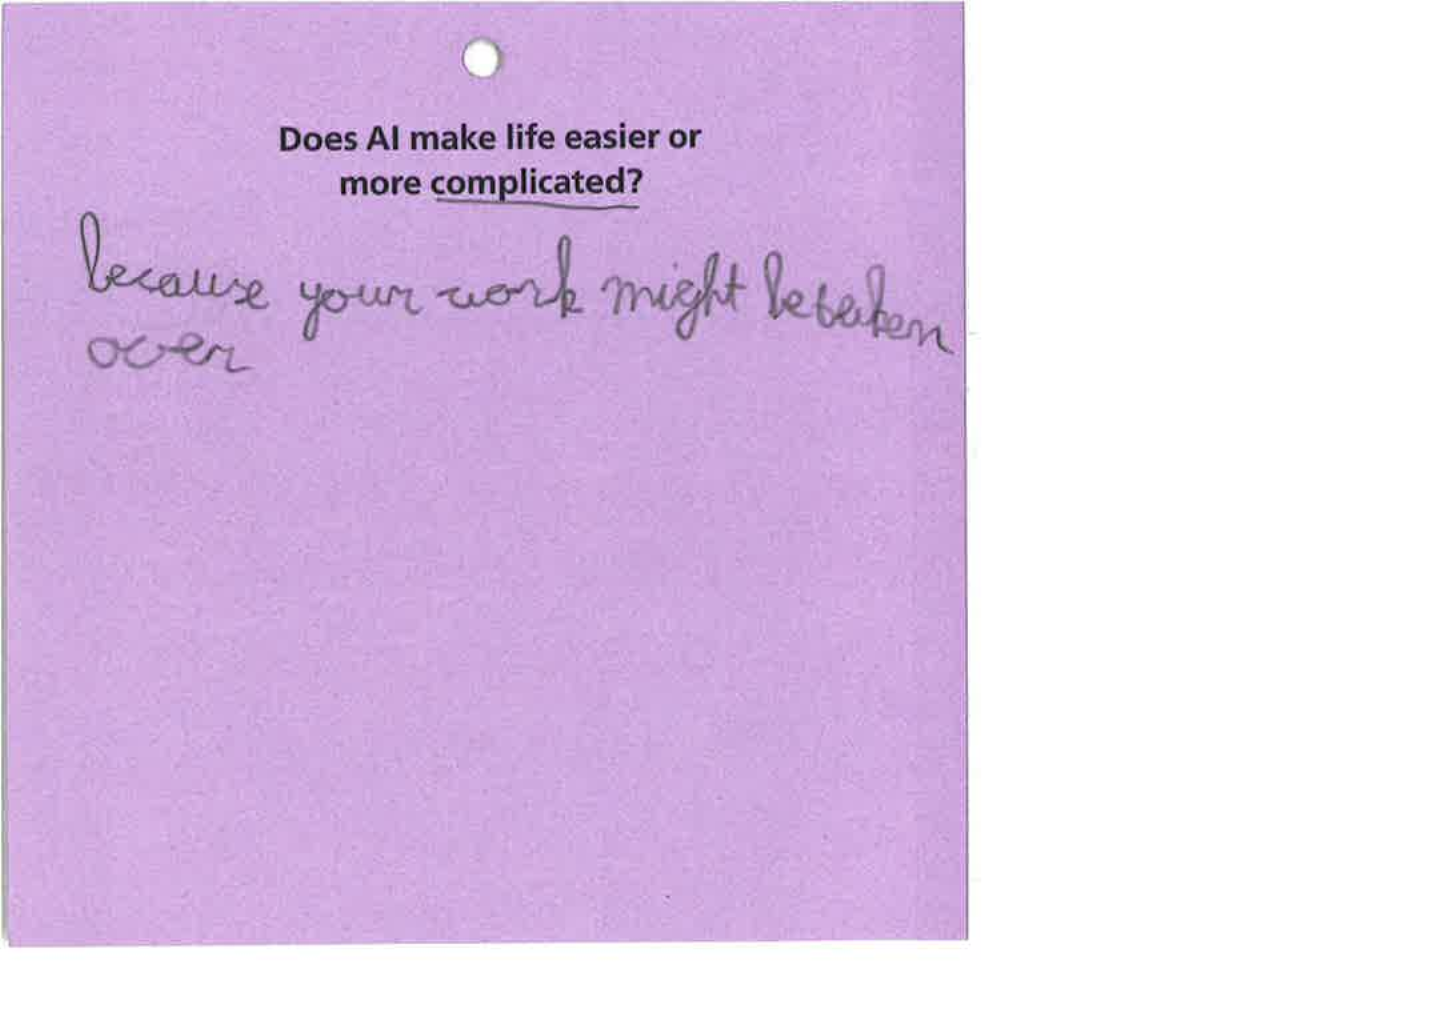 Does AI make life easier or
more complicated?
because your work might be taken
over